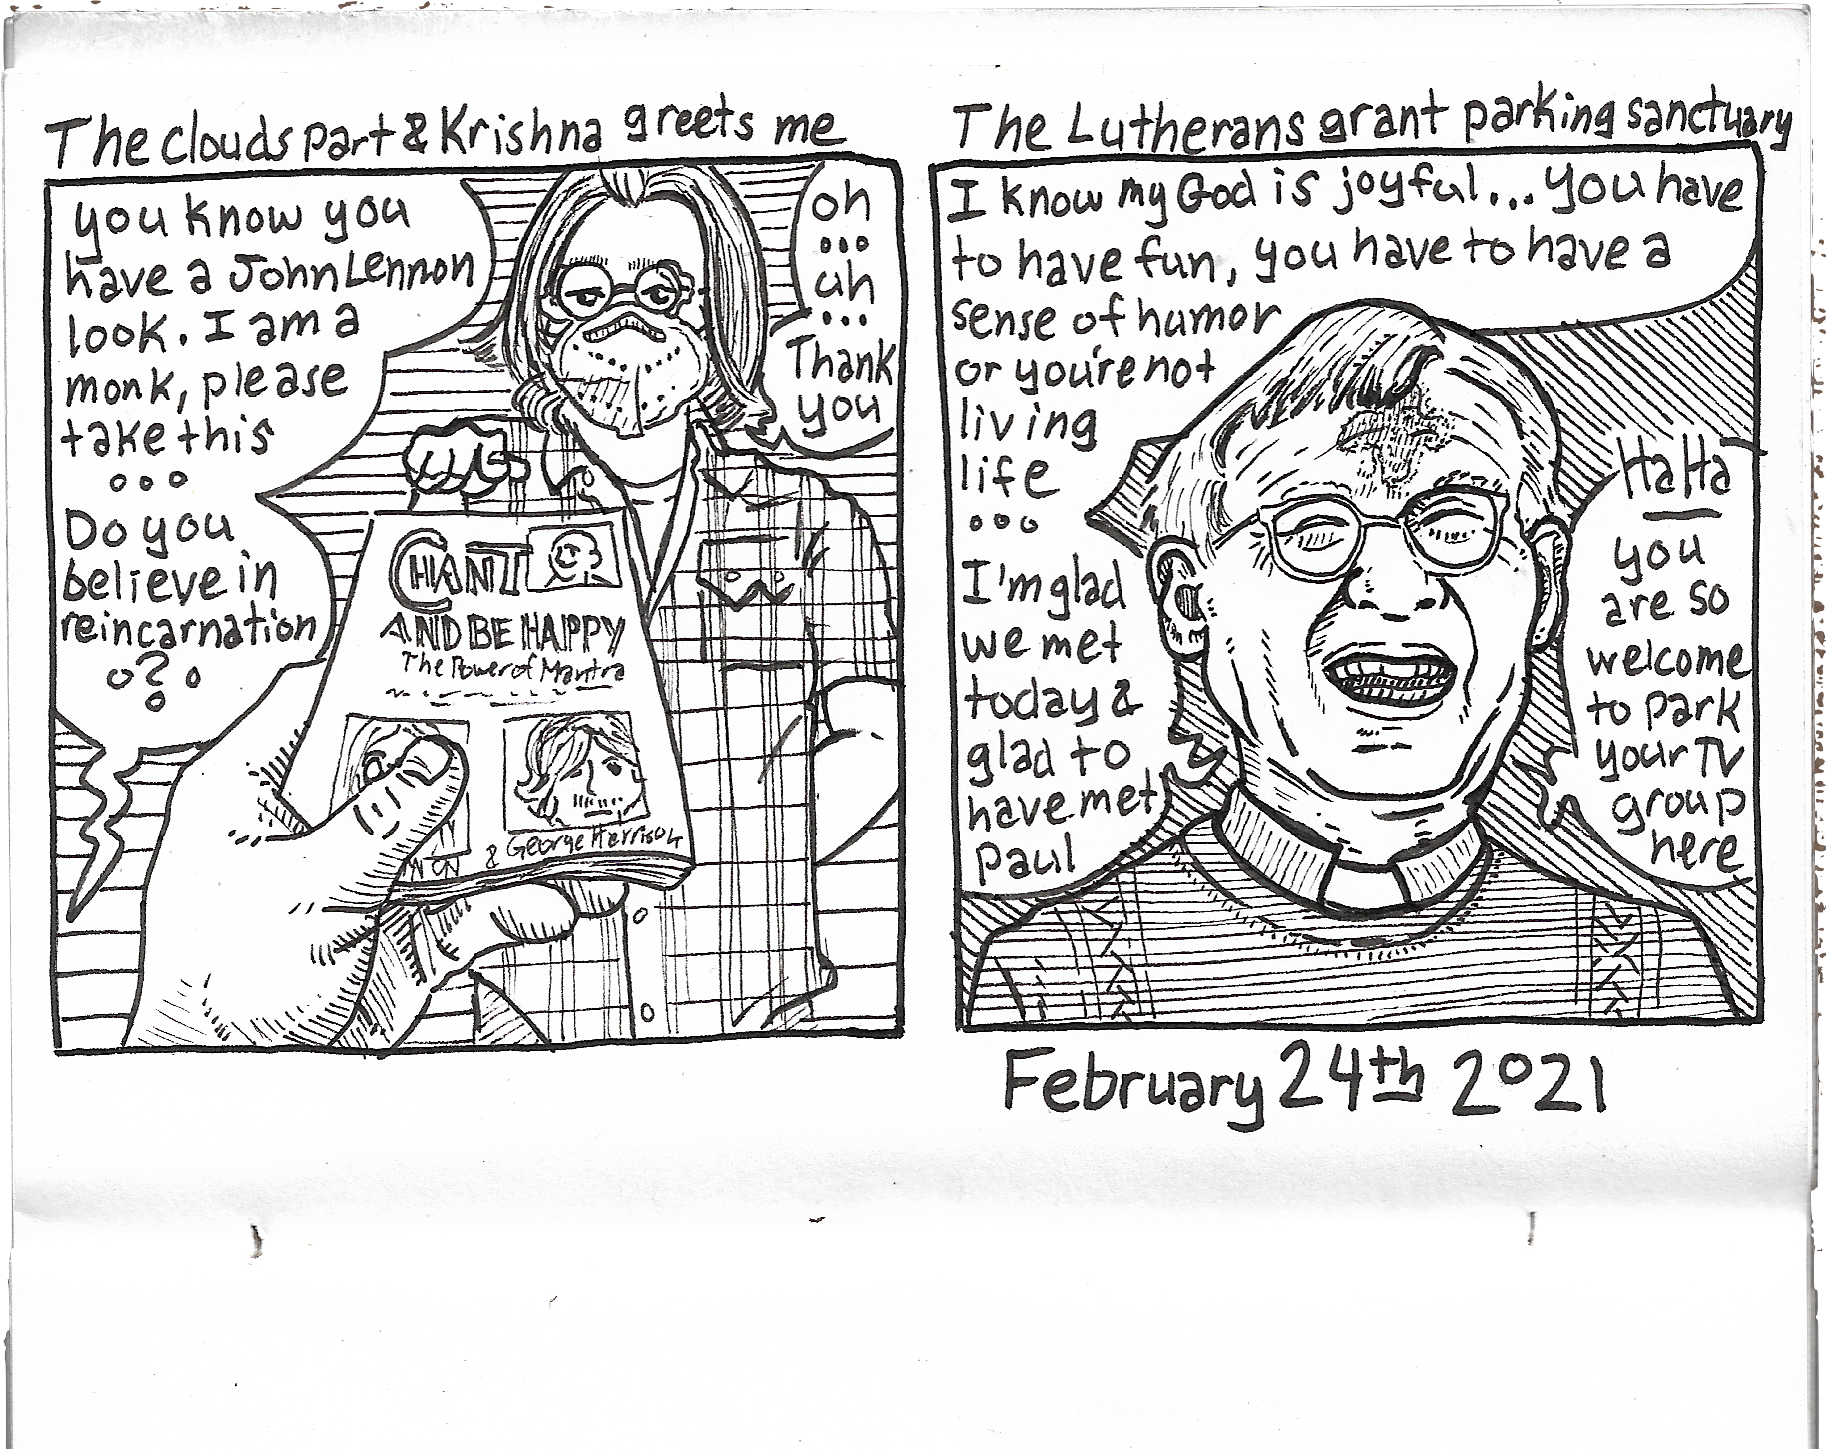 The clouds part & Krishna greets me
you know you
have a John Lennon
look. I am a
monk, please
take this
...
Do you
believe in
reincarnation
?
oh
...
uh
...
Thank
you
CHANT
AND BE HAPPY
The Power of Mantra
NON
& George Harrison
The Lutherans grant parking sanctuary
I know my God is joyful... you have
to have fun, you have to have a
sense of humor
or you're not
living
life
...
I'm glad
we met
today &
glad to
have met
Paul
HaHa
you
are so
welcome
to park
your TV
group
here
February 24th 2021